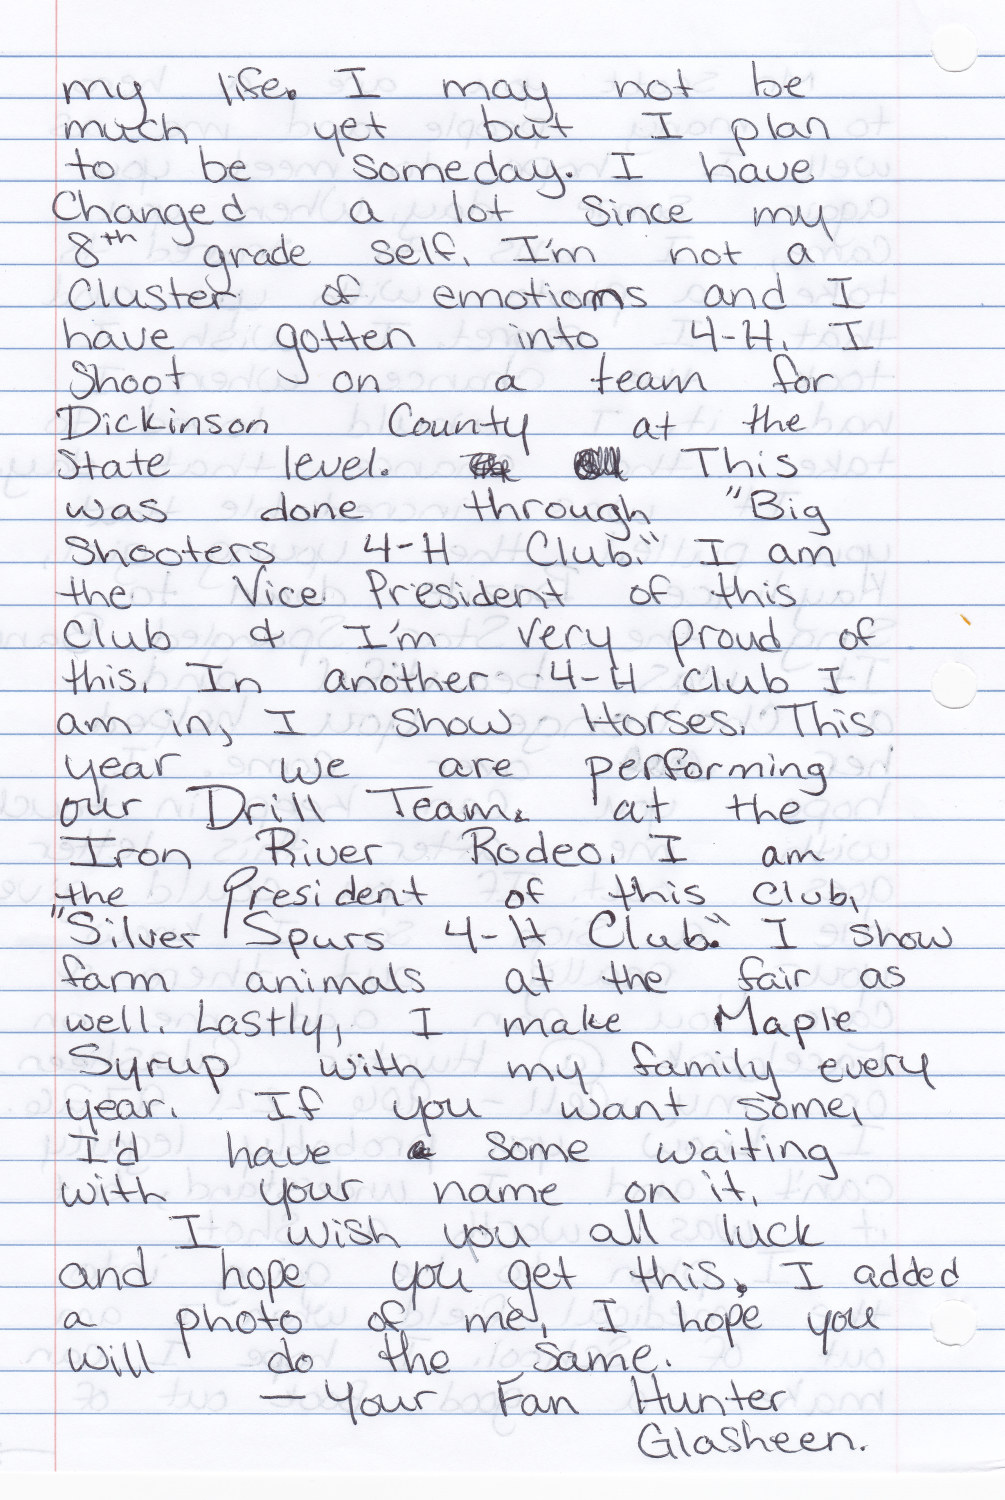 my life. I may not be
much yet but I plan
to be someday. I have
Changed a lot since my
8th grade self. I'm not a
Cluster of emotions and I
have gotten into 4-H. I
Shoot on a team for
Dickinson County at the
State level. This
was done through "Big
Shooters 4-H Club." I am
the Vice President of this
Club & I'm very proud of
this. In another 4-H Club I
am in, I show Horses. This
year we are performing
our Drill Team. at the
Iron River Rodeo. I am
the President of this Club,
"Silver Spurs 4-H Club." I show
farm animals at the fair as
well. Lastly, I make Maple
Syrup with my family every
year. If you want some,
I'd have some waiting
with your name on it.
I wish you all luck
and hope you get this. I added
a photo of me, I hope you
will do the same.
— Your Fan Hunter
Glasheen.